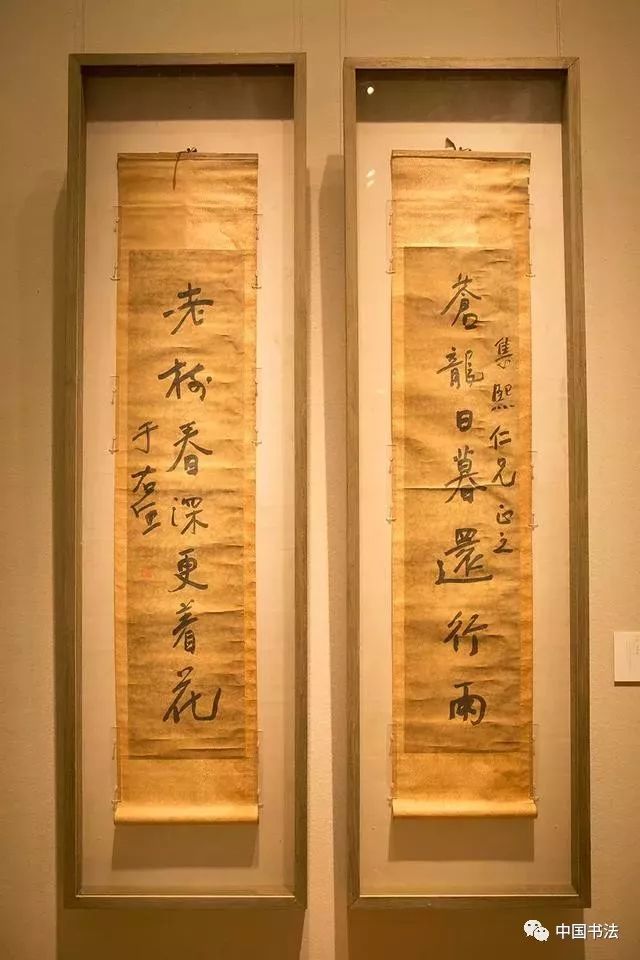 集熙仁兄正之
蒼龍日暮還行雨
老樹春深更着花
于右任
中国书法